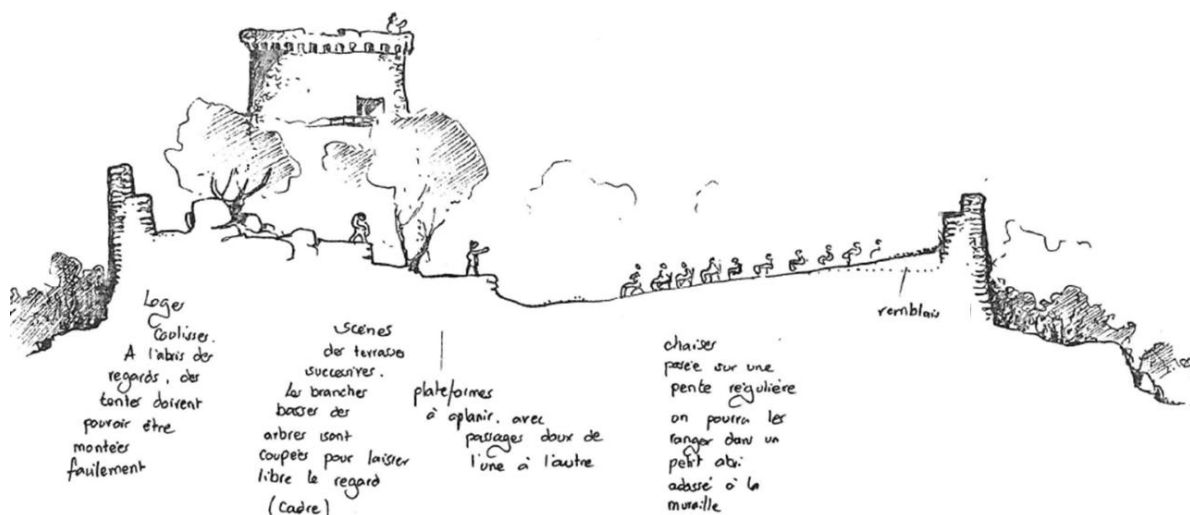 Loges
Coulisses.
A l'abris des
regards, des
tentes doivent
pouvoir être
montées
facilement
scènes
des terrasses
successives.
Les branches
basses des
arbres sont
coupées pour laisser
libre le regard
(Cadre)
plateformes
à aplanir, avec
passages doux de
l'une à l'autre
chaises
posée sur une
pente régulière
on pourra les
ranger dans un
petit abri
adossé à la
muraille
remblais